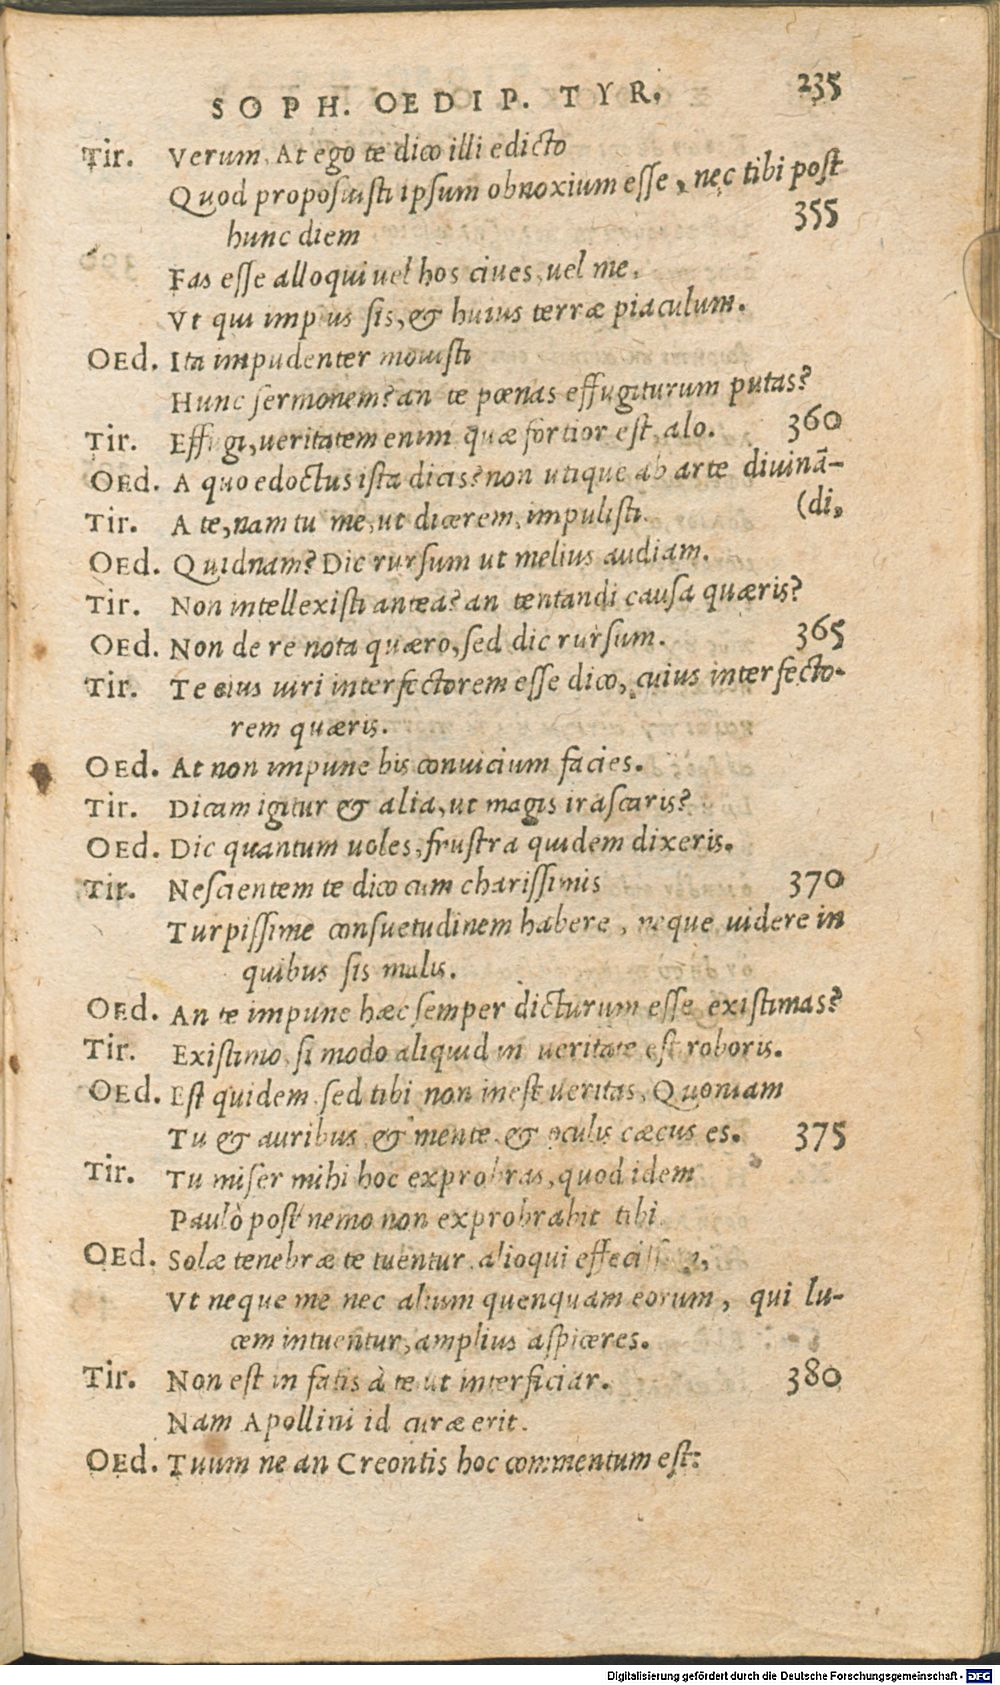 SOPH. OEDIP. TYR. 235
Tir. Verum, At ego te dico illi edicto
Quod proposuisti ipsum obnoxium esse, nec tibi post
hunc diem 355
Fas esse alloqui uel hos ciues, uel me,
Vt qui impius sis, & huius terræ piaculum.
OEd. Ita impudenter mouisti
Hunc sermonem? an te pœnas effugiturum putas?
Tir. Effugi, ueritatem enim quæ fortior est, alo. 360
OEd. A quo edoctus ista dicis? non utique ab arte diuinã-
Tir. A te, nam tu me, ut dicerem, impulisti. (di,
OEd. Quidnam? Dic rursum ut melius audiam.
Tir. Non intellexisti antea? an tentandi causa quæris?
OEd. Non de re nota quæro, sed dic rursum. 365
Tir. Te eius uiri interfectorem esse dico, cuius interfecto-
rem quæris.
OEd. At non impune bis conuicium facies.
Tir. Dicam igitur & alia, ut magis irascaris?
OEd. Dic quantum uoles, frustra quidem dixeris.
Tir. Nescientem te dico cum charissimis 370
Turpissime consuetudinem habere, neque uidere in
quibus sis malis.
OEd. An te impune hæc semper dicturum esse existimas?
Tir. Existimo, si modo aliquid in ueritate est roboris.
OEd. Est quidem, sed tibi non inest ueritas, Quoniam
Tu & auribus, & mente, & oculis cæcus es. 375
Tir. Tu miser mihi hoc exprobras, quod idem
Paulò post nemo non exprobrabit tibi.
OEd. Solæ tenebræ te tuentur, alioqui effecissem,
Vt neque me nec alium quenquam eorum, qui lu-
cem intuentur, amplius aspiceres.
Tir. Non est in fatis à te ut interficiar. 380
Nam Apollini id curæ erit.
OEd. Tuum ne an Creontis hoc commentum est:
Digitalisierung gefördert durch die Deutsche Forschungsgemeinschaft - DFG